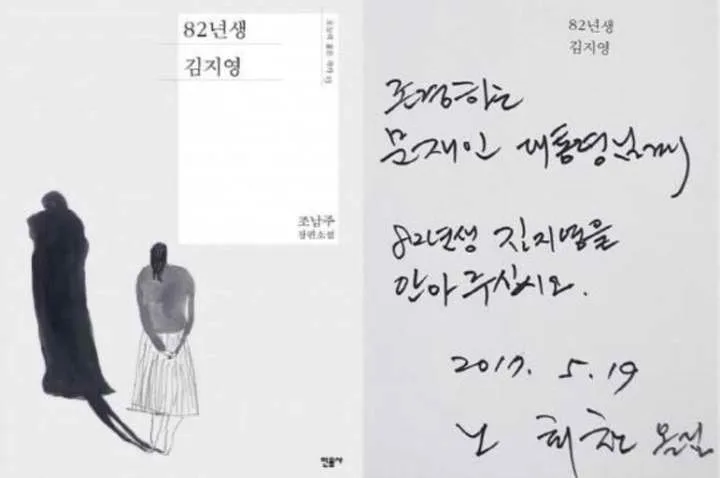 82년생
김지영
오늘의 젊은 작가 13
조남주
장편소설
민음사
82년생
김지영
존경하는
문재인 대통령님께
82년생 김지영을
안아 주십시오.
2017. 5. 19
노 회찬 올림